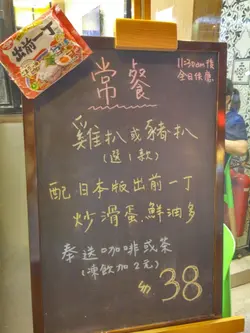 出前一丁
常餐
11:30am後
全日供應
雞扒或豬扒
(選1款)
配日本版出前一丁
炒滑蛋.鮮油多
奉送咖啡或茶
(凍飲加2元)
38